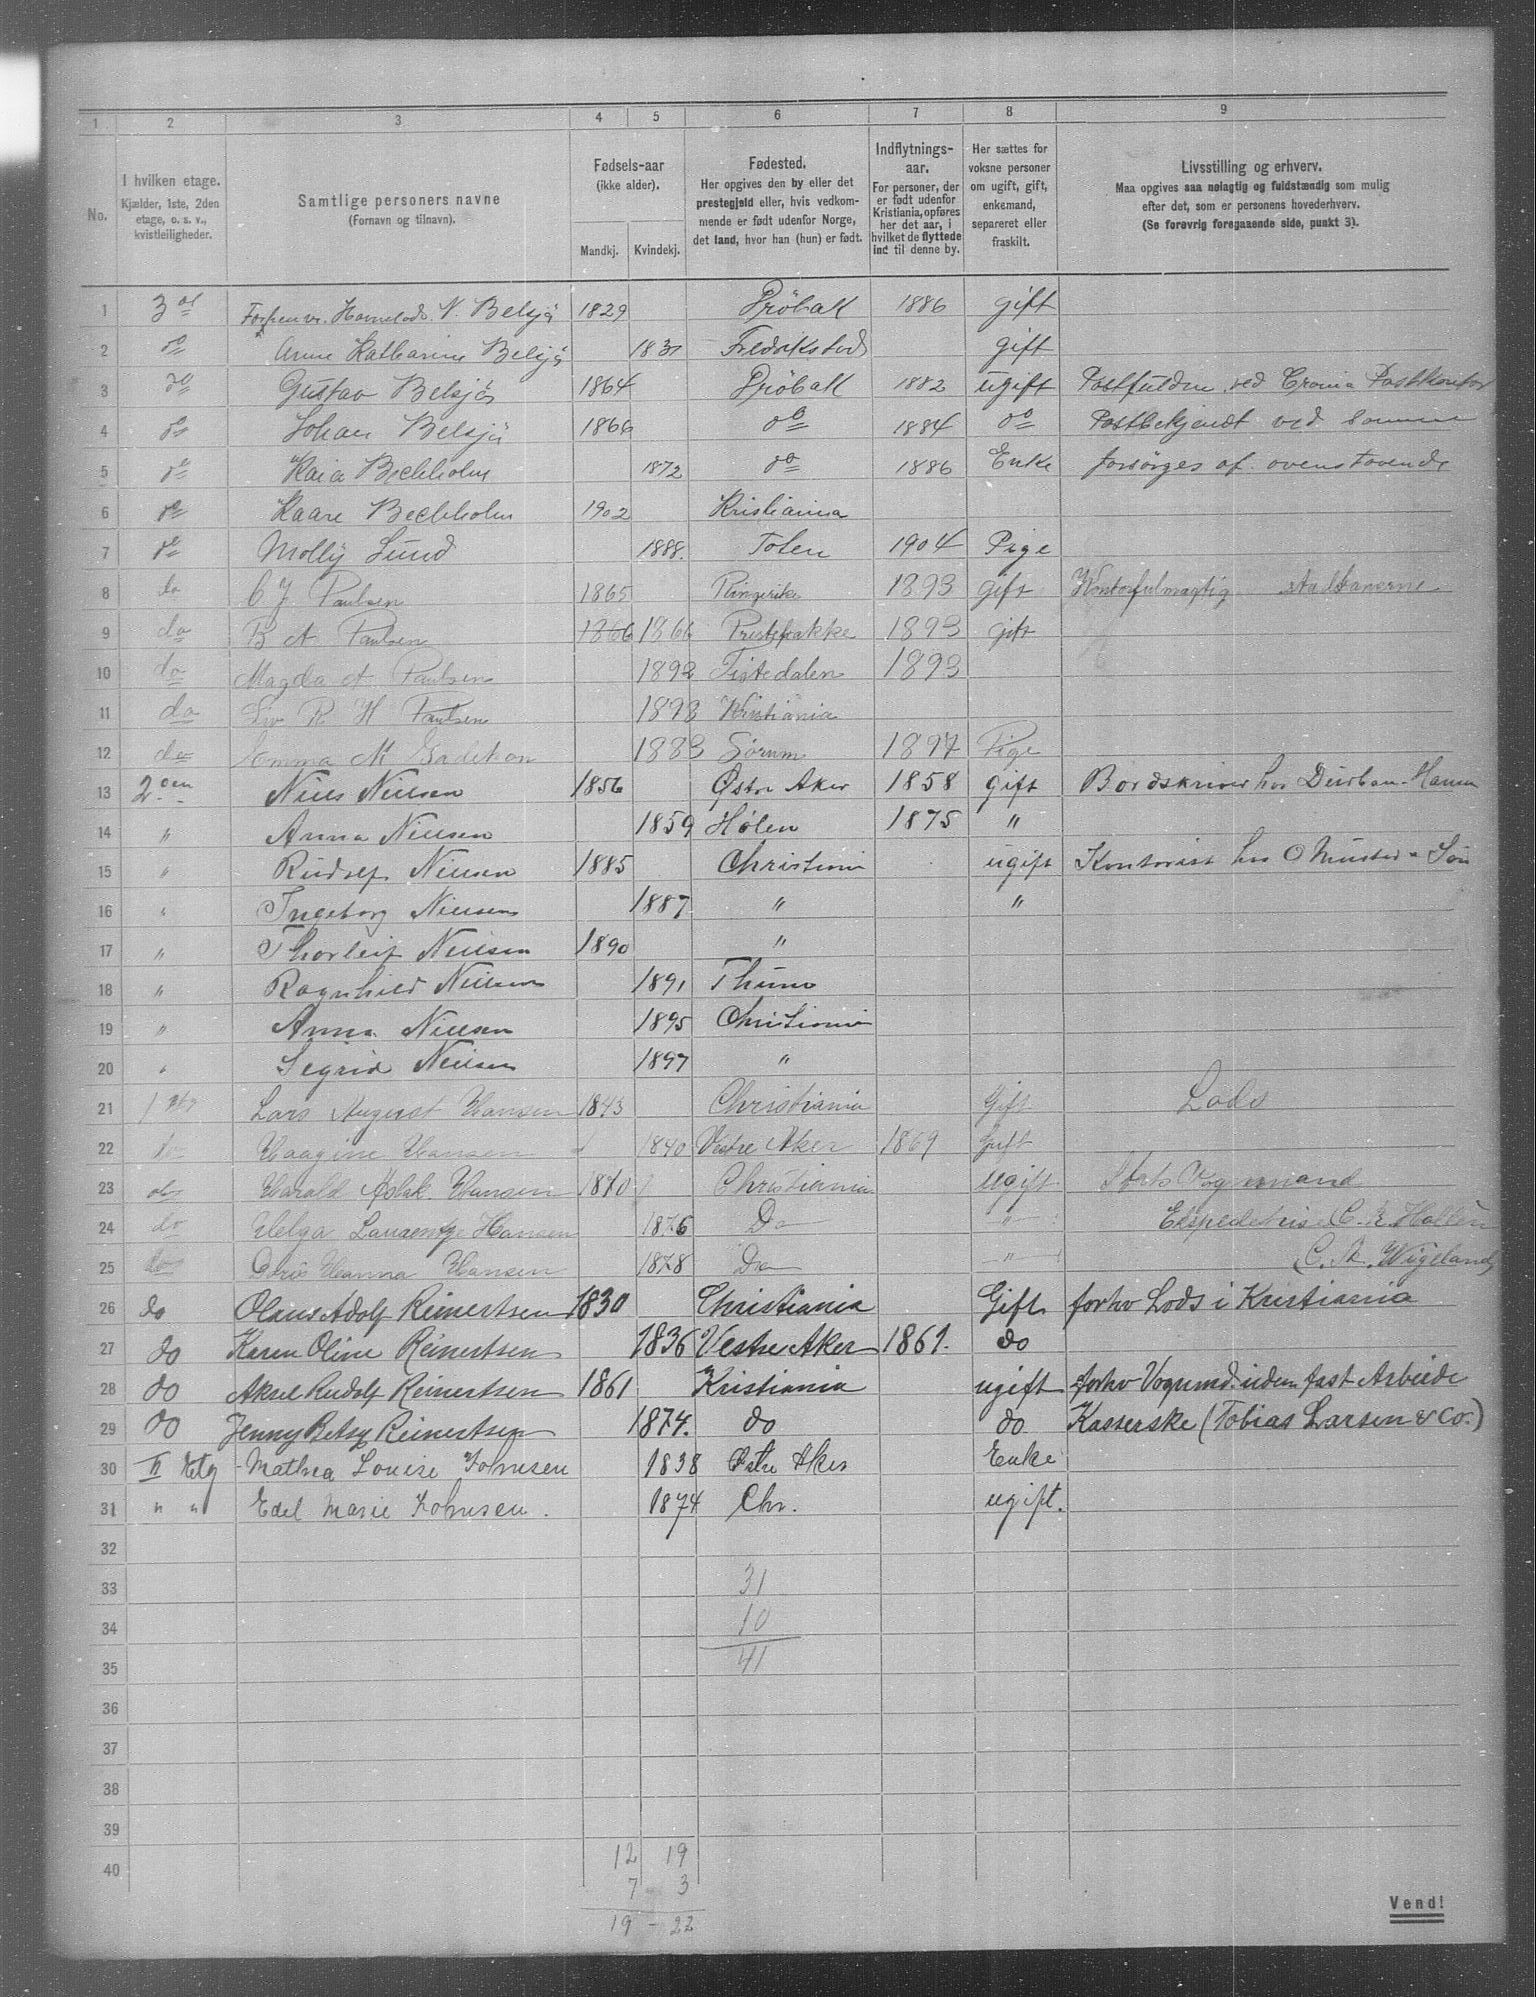 1 2 3 4 5 6 7 8 9
No. I hvilken etage. Kjælder, 1ste, 2den etage, o. s. v., kvistleiligheder. Samtlige personers navne (Fornavn og tilnavn). Fødsels-aar (ikke alder). Mandkj. Kvindekj. Fødested. Her opgives den by eller det prestegjeld eller, hvis vedkommende er født udenfor Norge, det land, hvor han (hun) er født. Indflytningsaar. For personer, der er født udenfor Kristiania, opføres her det aar, i hvilket de flyttede ind til denne by. Her sættes for voksne personer om ugift, gift, enkemand, separeret eller fraskilt. Livsstilling og erhverv. Maa opgives saa nøiagtig og fuldstændig som mulig efter det, som er personens hovederhverv. (Se forøvrig foregaaende side, punkt 3).
1 3 N. Belsjø 1829 Drøbak 1886 gift
2 do Anne Katharine Belsjø 183 Fredrikstad gift
3 do Gustav Belsjø 1864 Drøbak 1882 ugift ved Postkontor
4 do Johan Belsjø 1866 do 1884 do Postbetjent ved samme
5 do Kaia Bechholm 1872 do 1886 Enke forsørges af ovenstaaende
6 do Kaare Bechholm 1902 Kristiania
7 do Molly Lund 1888. Toten 1904 Pige
8 do C J Paulsen 1865 Ringerike 1893 gift Kontorfulmægtig Statsbanerne
9 do B A Paulsen 1866 1866 Prestebakke 1893 gift
10 do Magda A Paulsen 1892 Tistedalen 1893
11 do Liv R H Paulsen 1893 Kristiania
12 do Emma M 1883 Sørum 1897 Pige
13 2den Niels Nielsen 1856 Østre Aker 1858 gift Bordskriver hos Hansen
14 " Anna Nielsen 1859 Hølen 1875 "
15 " Rudolf Nielsen 1885 Christiania ugift Kontorist hos O Mustad & Søn
16 " Ingeborg Nielsen 1887 " "
17 " Thorleif Nielsen 1890 "
18 " Ragnhild Nielsen 1891 Thune
19 " Anna Nielsen 1895 Christiania
20 " Sigrid Nielsen 1897 "
21 1 Etg Lars August Hansen 1843 Christiania Gift Lods
22 do Haagine Hansen 1840 Vestre Aker 1869 Gift
23 do Harald Aslak Hansen 1870 Christiania ugift Vognmand
24 do Helga Laurentze Hansen 1876 Do " Ekspeditrise
25 do Doris Hanna Hansen 1878 Do " Wigeland
26 do Olaus Adolf Reinertsen 1830 Christiania Gift forhv Lods i Kristiania
27 do Karen Oline Reinertsen 1836 Vestre Aker 1861. do
28 do Aksel Rudolf Reinertsen 1861 Kristiania ugift forhv Vognmd. uden fast Arbeide
29 do Jenny Betsy Reinertsen 1874. do do Kasserske (Tobias Larsen & Co.)
30 II Etg Mathea Louise Johnsen 1838 Østre Aker Enke
31 " " Edel Marie Johnsen. 1874 Chr. ugift.
32
33 31
34 10
35 41
36
37
38
39
40 12 19
7 3
19 - 22
Vend!